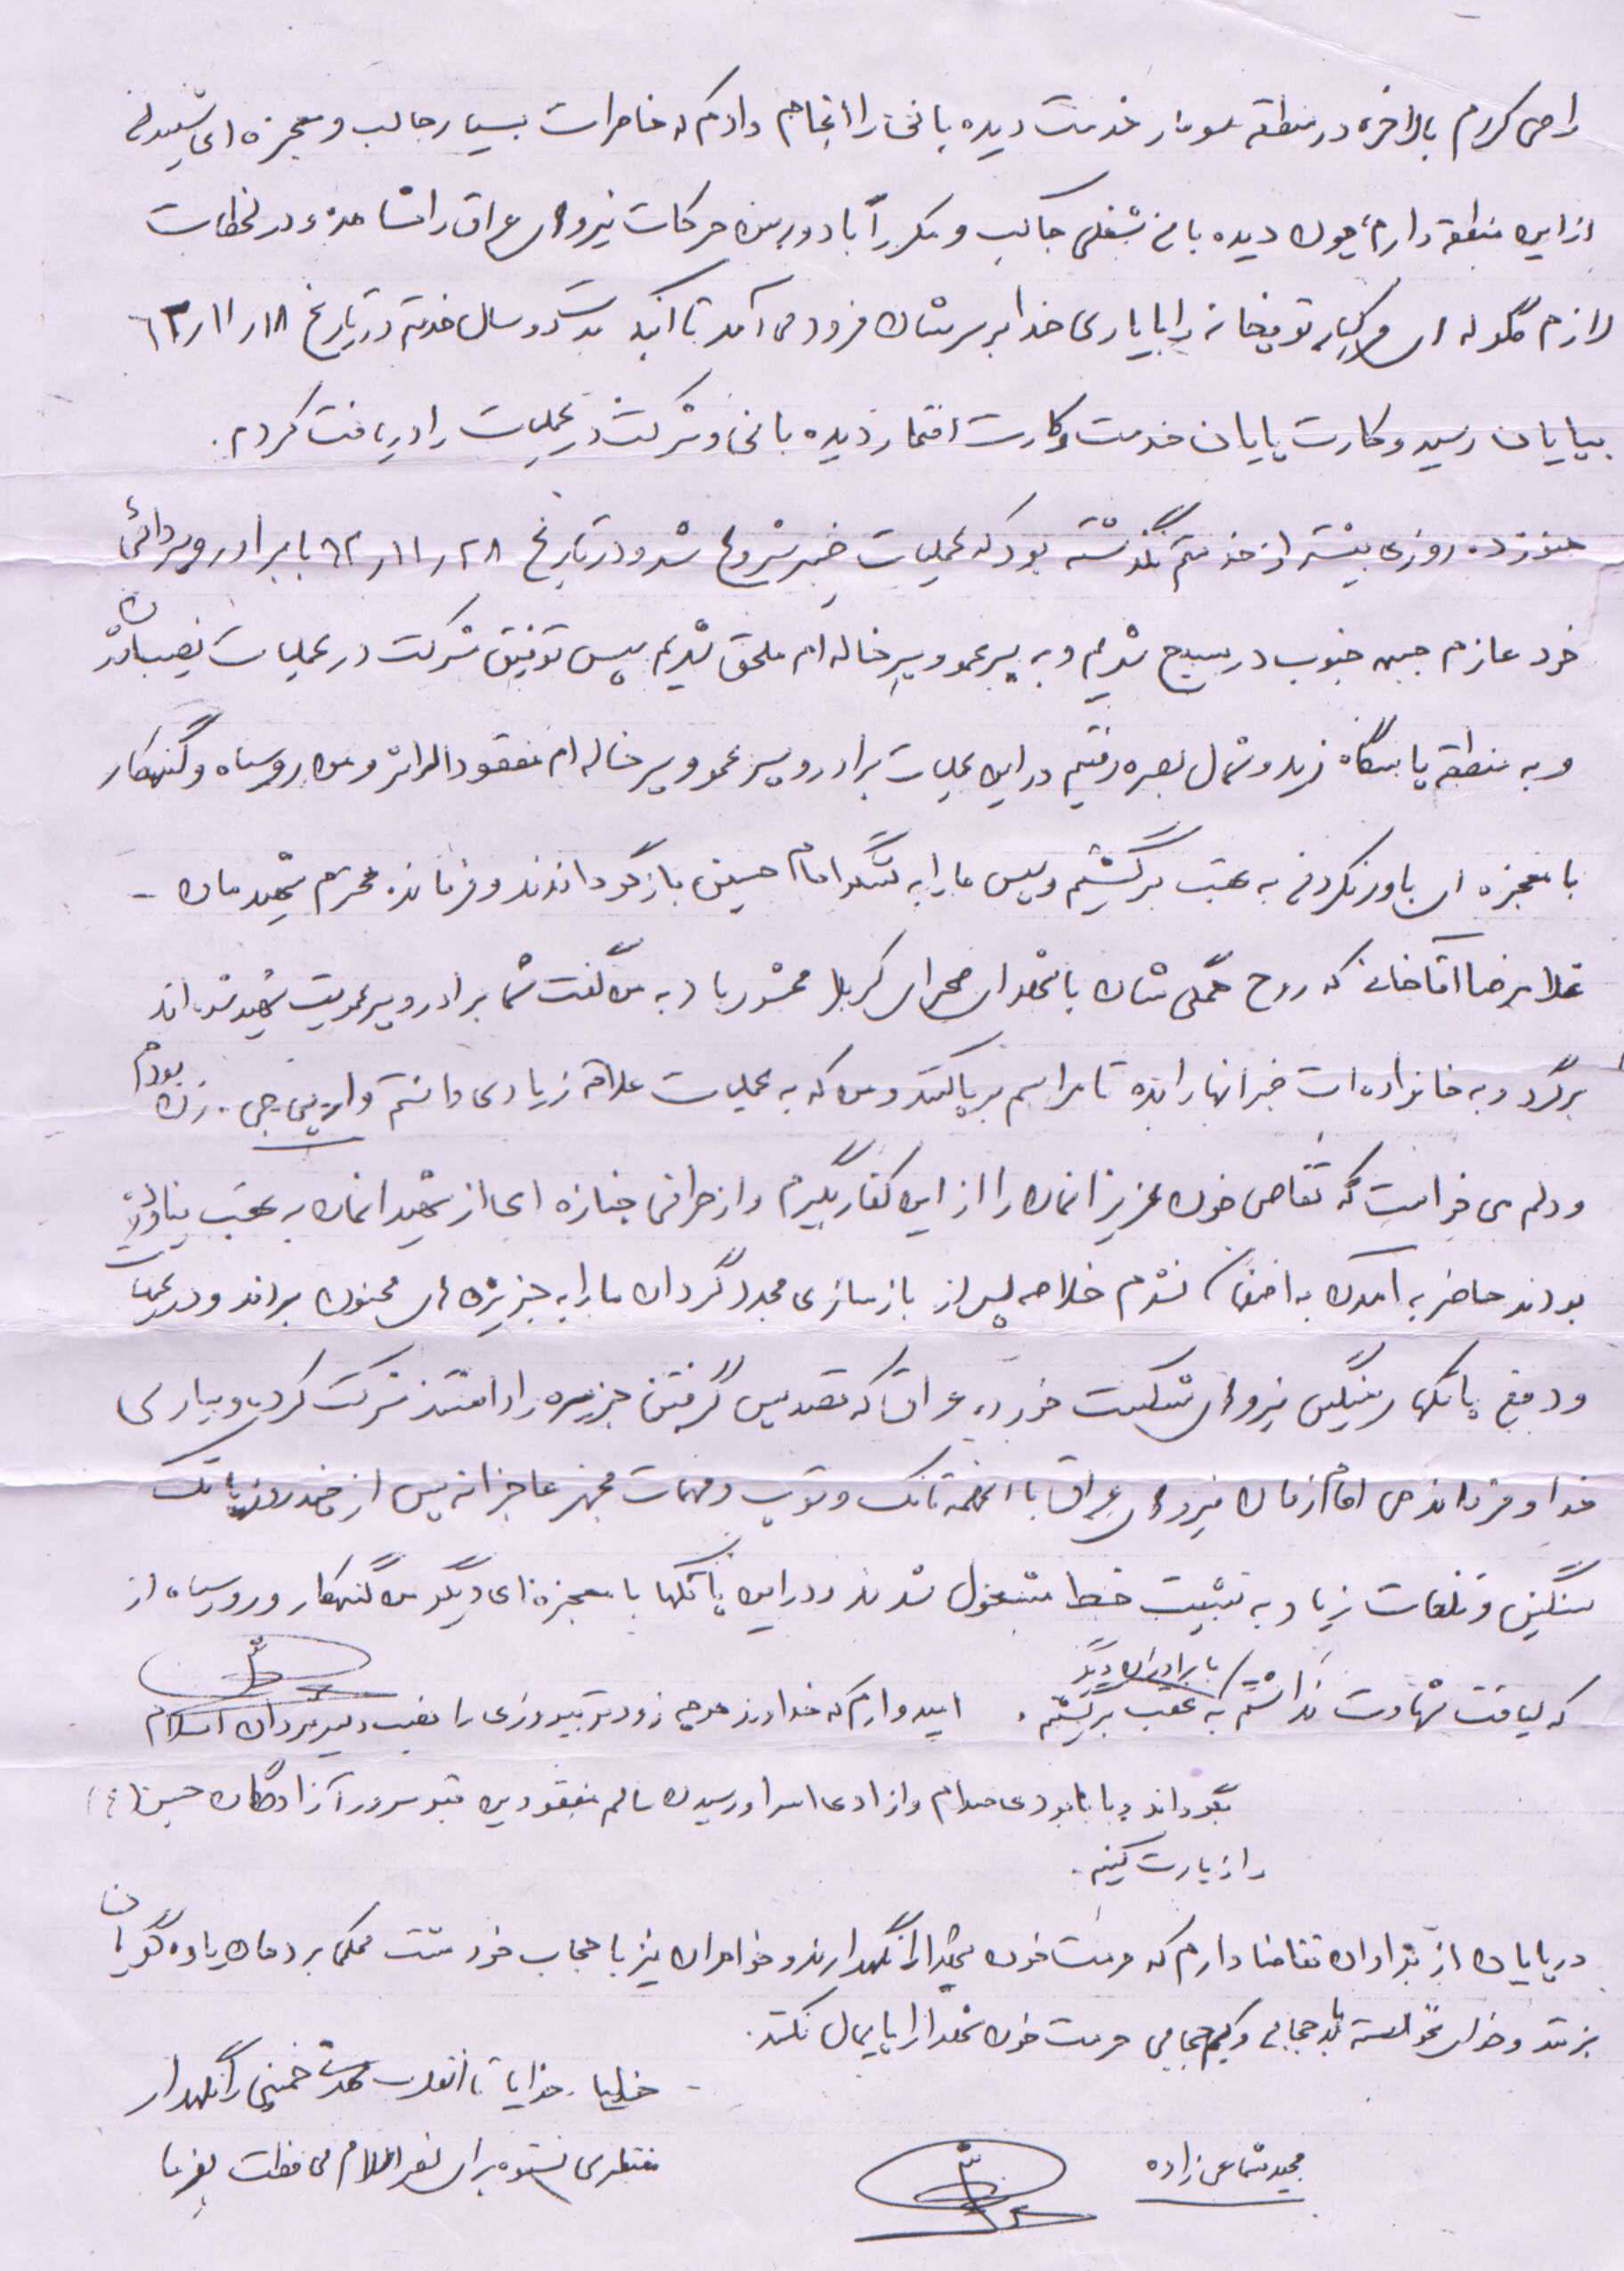 راحی کردم بالاخره در منطقه سومار خدمت دیده بانی را انجام دادم که خاطرات بسیار جالب و معجزه ای شنیدنی
از این منطقه دارم چون دیده بانی شغلی جالب و مکرراً با دوربین حرکات نیروی عراق را مشاهده و در لحظات
لازم گلوله ای توپخانه را با یاری خدا بر سرشان فرود می آمد تا آنکه مدت دو سال خدمتم در تاریخ ۶۲ر۱۱ر۱۸
بپایان رسید و کارت پایان خدمت و کارت افتخار دیده بانی و شرکت در عملیات را دریافت کردم.
هنوز ده روزی بیشتر از خدمتم نگذشته بود که عملیات خیبر شروع شد و در تاریخ ۶۲ر۱۱ر۲۸ با برادر و پسردائی
خود عازم جبهه جنوب در بسیج شدیم و به پسرعمو و پسرخاله ام ملحق شدیم پس توفیق شرکت در عملیات نصیبمان شد
و به منطقه پاسگاه زید و شمال بصره رفتیم در این عملیات برادر و پسر عمو و پسر خاله ام مفقودالاثر و من روسیاه و گنهکار
با معجزه ای باور نکردنی به عقب برگشتم و پس ما را به لشگر امام حسین بازگرداندند و فرمانده محترم شهیدمان -
غلامرضا آقاخانی که روح همگی شان با شهدای صحرای کربلا محشور باد به من گفت شما برادر و پسرعمویت شهید شده اند
برگرد و به خانواده ات خبر آنها را بده تا مراسم برپا کنند و من که به عملیات علاقه زیادی داشتم و آرپی جی زن بودم
و دلم می خواست که تقاص خون عزیزانمان را از این کفار بگیرم و از طرفی جنازه ای از شهیدانمان به عقب نیاورده
بودند حاضر به آمدن به اصفهان نشدم خلاصه پس از بازسازی مجدد گردان ما را به جزیره ای مجنون بردند و در عملیات
و دفع پاتکهای سنگین نیروی شکست خورده عراق که قصد پس گرفتن جزیره را داشتند شرکت کردیم و بیاری
خدا و فرماندهی امام زمان نیروی عراق با آنهمه تانک و توپ و مهمات مجهز عاجزانه پس از چند روز پاتک
سنگین و تلفات زیاد به تثبیت خط مشغول شدند و در این پاتکها با معجزه ای دیگر من گنهکار و روسیاه از
که لیاقت شهادت نداشتم با برادران دیگر به عقب برگشتیم. امیدوارم که خداوند هرچه زودتر پیروزی را نصیب دلیرمردان اسلام
بگرداند و با نابودی صدام و آزادی اسرا و رسیدن سالم مفقودین قبر سرور آزادگان حسین (ع)
را زیارت کنیم.
در پایان از برادران تقاضا دارم که حرمت خون شهدا را نگهدارند و خواهران نیز با حجاب خود مشت محکمی بر دهان یاوه گویان
بزنند و خدای نخواسته با بد حجابی و بی حجابی حرمت خون شهدا را پایمال نکنند.
خدایا. خدایا تا انقلاب مهدی خمینی را نگهدار
منتظری نستوه برای نصر اسلام محافظت بفرما
مجید شماعی زاده